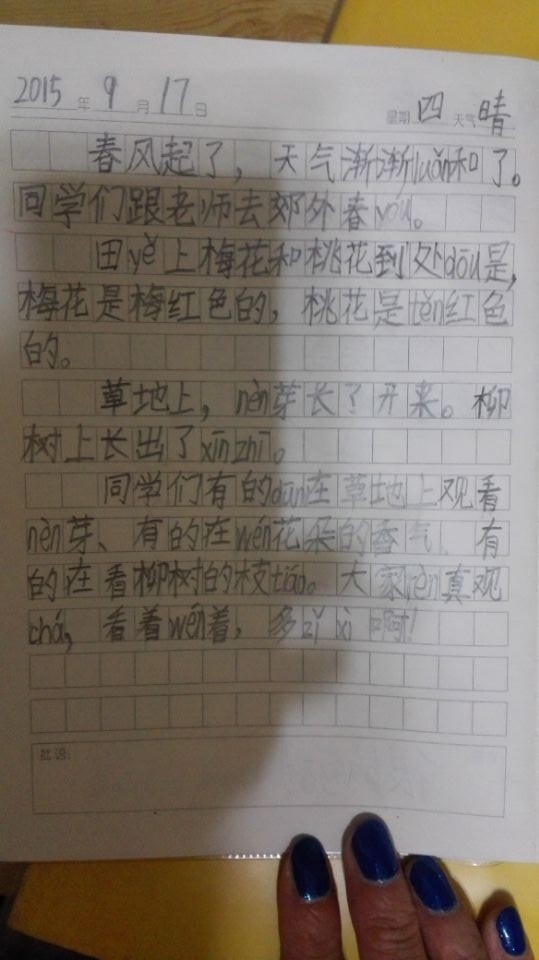 2015 年 9 月 17 日 星期 四 天气 晴
春风起了，天气渐渐luǎn和了。
同学们跟老师去郊外春yóu。
田yě上梅花和桃花到处dōu是，
梅花是梅红色的，桃花是fěn红色
的。
草地上，nèn芽长了开来。柳
树上长出了xīnzhī。
同学们有的dūn在草地上观看
nèn芽、有的在wén花朵的香气、有
的在看柳树的枝tiáo。大家rèn真观
chá，看着wén着，多zǐ xì啊！
批语：